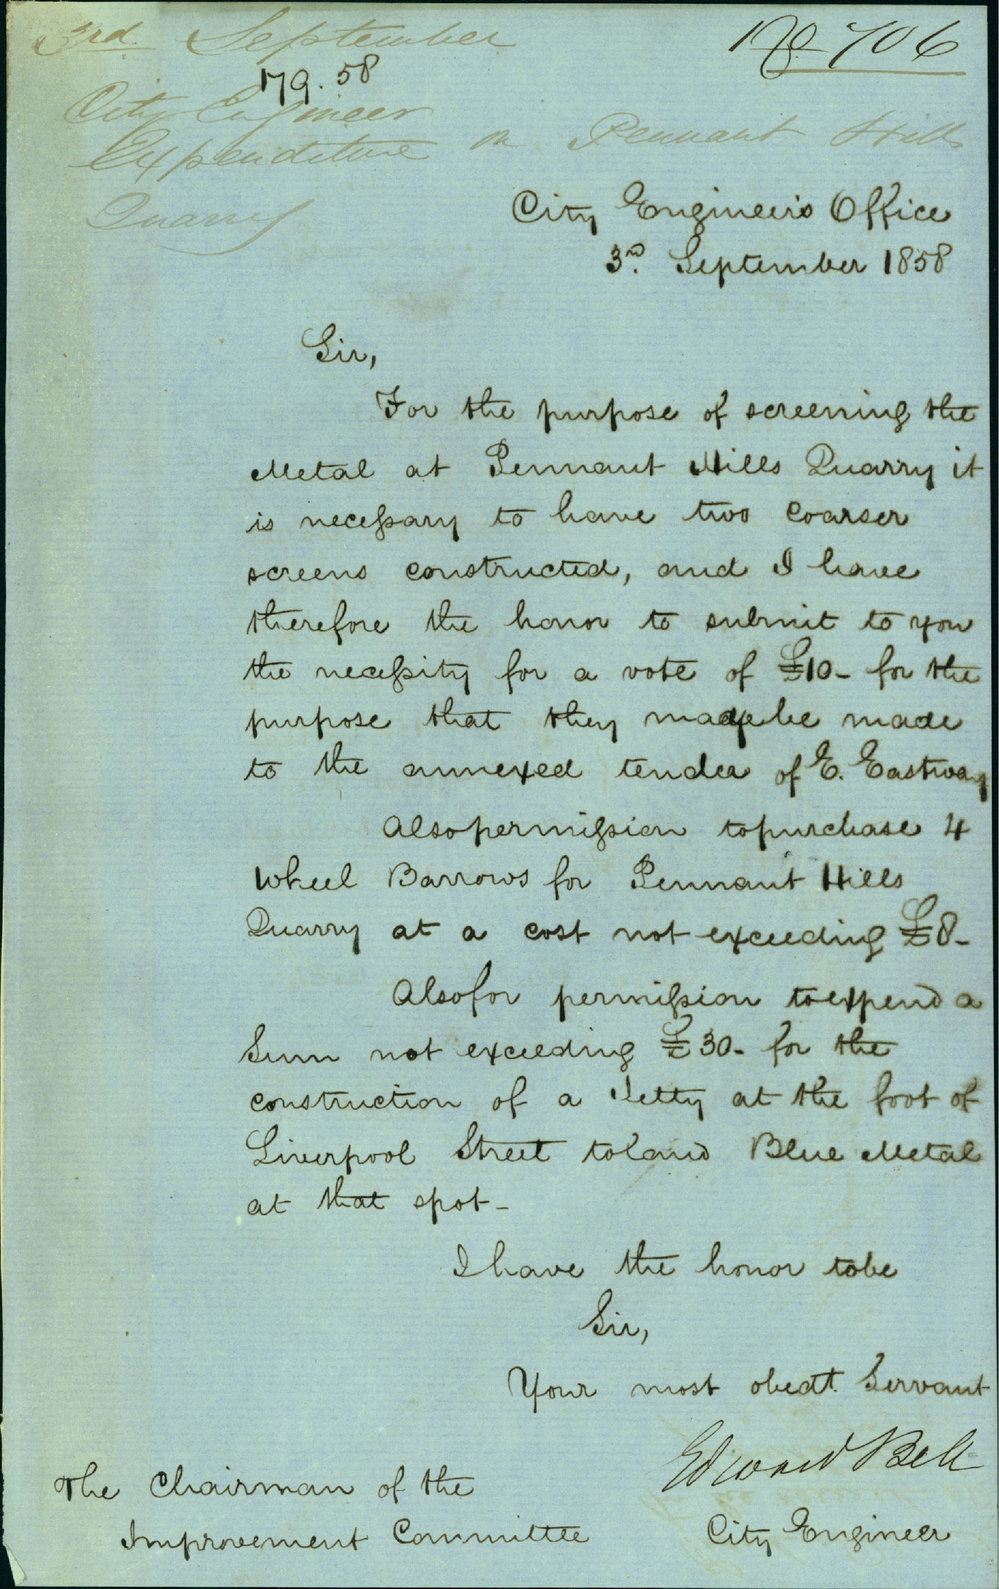 3rd September
No 706
179.58
City Engineer
Expenditure on Pennant Hills
Quarry
City Engineer's Office
3rd. September 1858
Sir,
For the purpose of screening the
Metal at Pennant Hills Quarry it
is necessary to have two coarser
screens constructed, and I have
therefore the honor to submit to you
the necessity for a vote of £10- for the
purpose that they may be made
to the annexed tender of E. Eastway
Also permission to purchase 4
Wheel Barrows for Pennant Hills
Quarry at a cost not exceeding £8-
Also for permission to expend a
Sum not exceeding £30- for the
construction of a Jetty at the foot of
Liverpool Street to land Blue Metal
at that spot-
I have the honor to be
Sir,
Your most obedt. Servant
Edward Bell
The Chairman of the
Improvement Committee
City Engineer